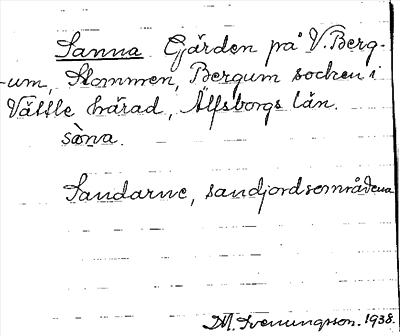 Sanna Gärden på V. Berg-
um, Stommen, Bergum socken i
Vättle härad, Älfsborgs län.
sàna.
Sandarne, sandjordsområdena
M. Svenungsson. 1938.